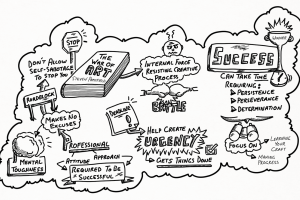 STOP
DON'T ALLOW
SELF-SABOTAGE
TO STOP YOU
ROADBLOCK
THE
WAR OF
ART
INTERNAL FORCE
RESISTING CREATIVE
PROCESS
BATTLE
SUCCESS
CAN TAKE TIME
REQUIRING:
PERSISTENCE
PERSEVERANCE
DETERMINATION
MAKES NO
EXCUSES
DEADLINE
MENTAL
TOUGHNESS
PROFESSIONAL
ATTITUDE APPROACH
REQUIRED TO BE
SUCCESSFUL
HELP CREATE
URGENCY
GETS THINGS DONE
FOCUS ON
LEARNING
YOUR
CRAFT
MAKING
PROGRESS